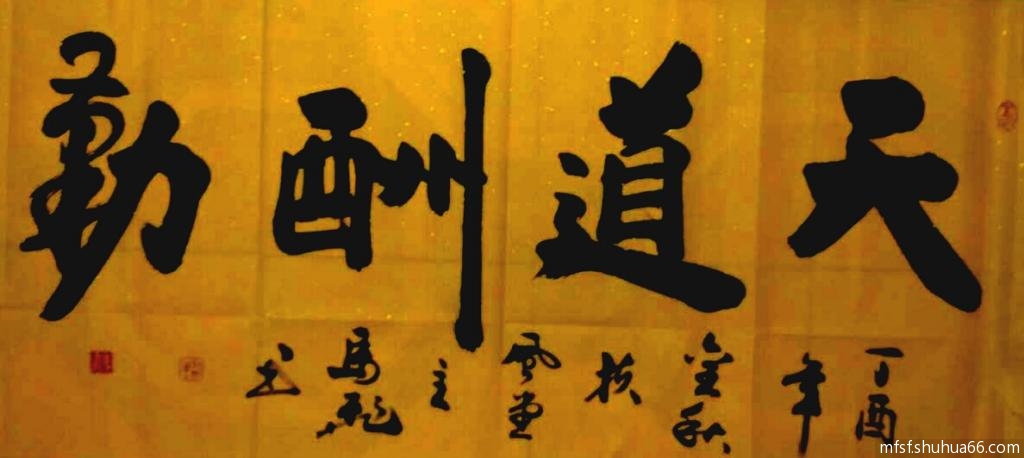 天道酬勤
丁酉年金秋扶風堂主馬龍書
mfsf.shuhua66.com